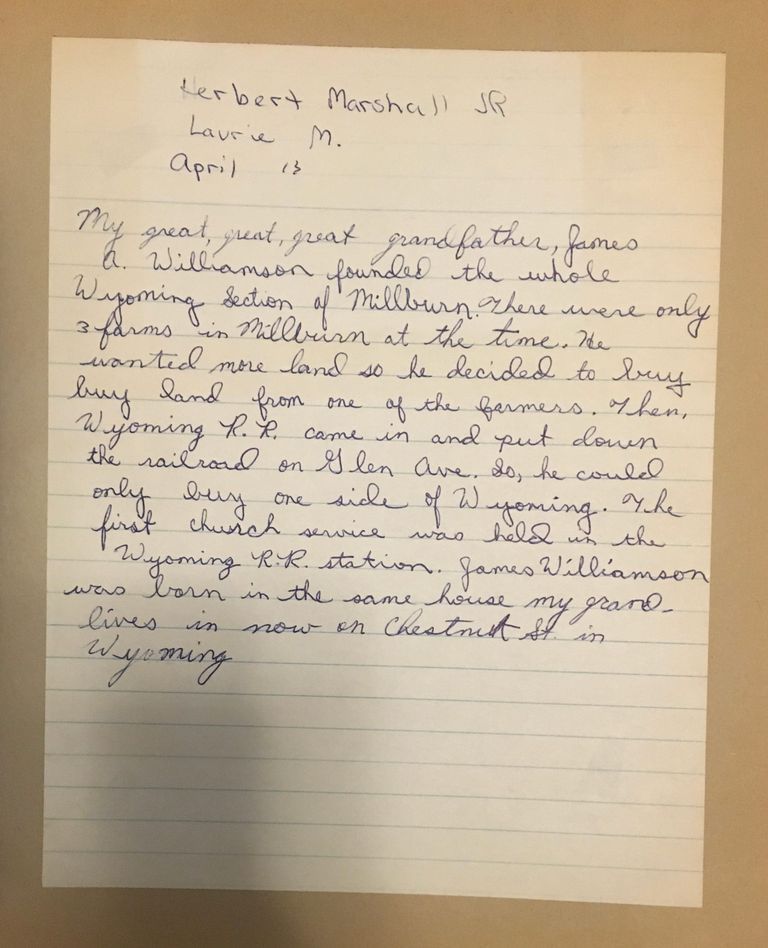 Herbert Marshall JR
Laurie M.
April 13
My great, great, great grandfather, James
A. Williamson founded the whole
Wyoming Section of Millburn. There were only
3 farms in Millburn at the time. He
wanted more land so he decided to buy
buy land from one of the farmers. Then,
Wyoming R.R. came in and put down
the railroad on Glen Ave. So, he could
only buy one side of Wyoming. The
first church service was held in the
Wyoming R.R. station. James Williamson
was born in the same house my grand-
lives in now on Chestnut St. in
Wyoming